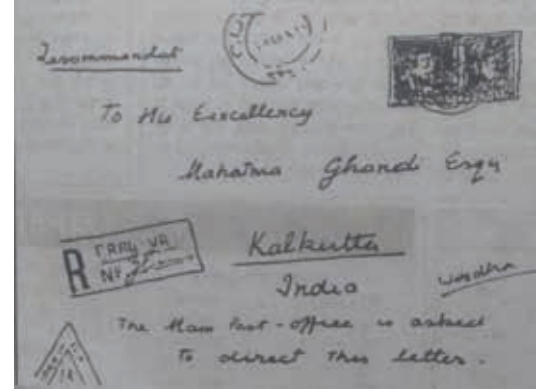 Recommandat
To His Excellency
Mahatma Ghandi Esqu
R
No
Kalkutta
India
Wardha
The Main Post-office is asked
to direct this letter.